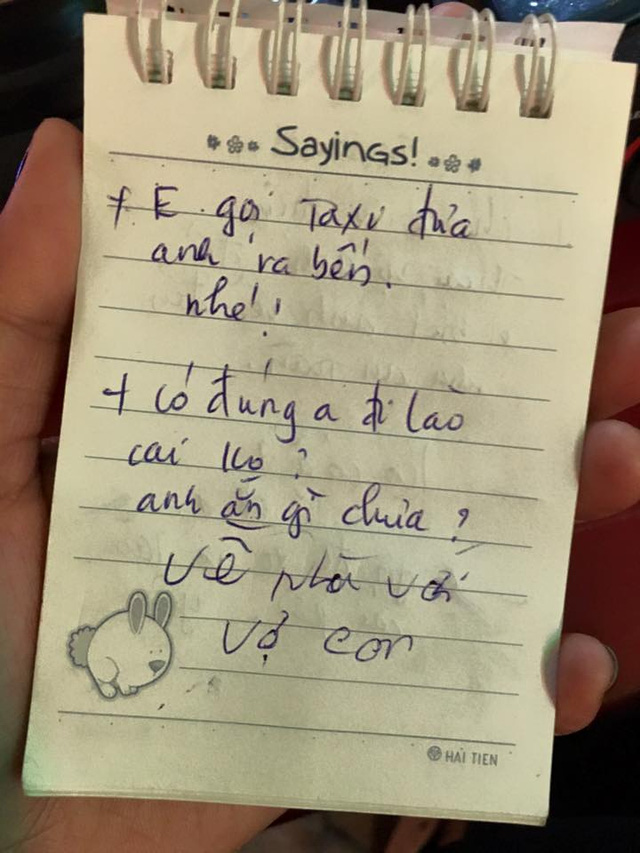 Sayings!
+ E gọi Taxi đưa
anh ra bến.
nhé!
+ Có đúng a đi lào
cai ko ?
anh ăn gì chưa ?
Về nhà với
vợ con
HẢI TIẾN